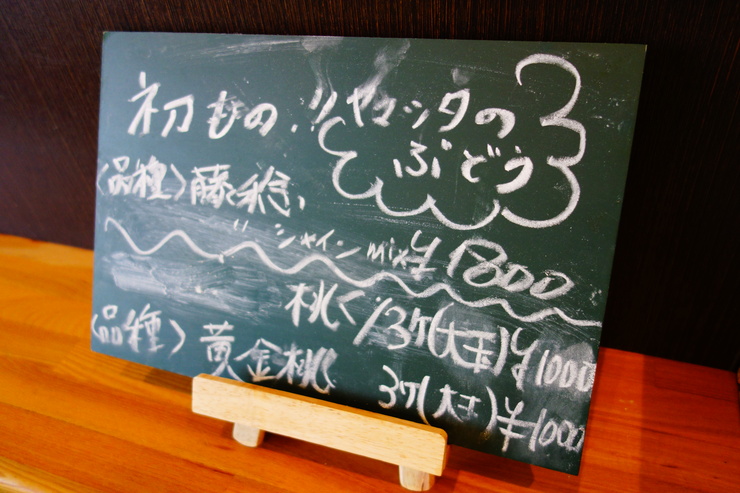 初もの!!
ヤコシタの
ぶどう
〈品種〉藤稔、
〃 シャインmix ¥1800
桃く 3ケ(大玉)¥1000
〈品種〉黄金桃 3ケ(大玉)¥1000